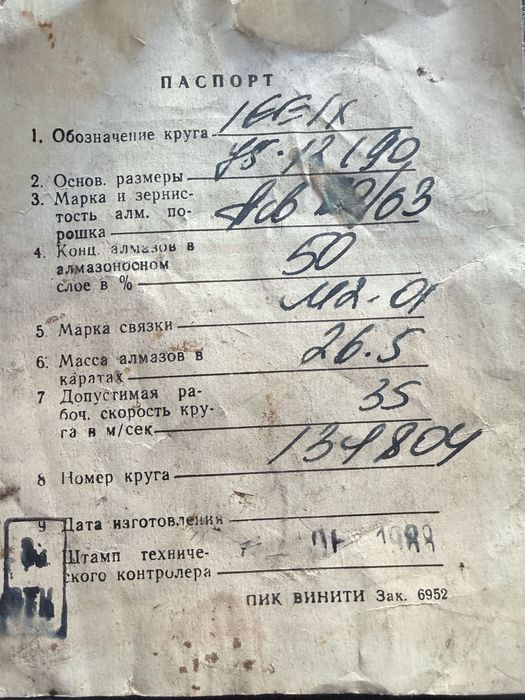 ПАСПОРТ
1. Обозначение круга 1EEIX
2. Основ. размеры 190
3. Марка и зернис-
тость алм. по- /63
рошка
4. Конц. алмазов в
алмазоносном 50
слое в %
5. Марка связки М2-01
6. Масса алмазов в 26.5
каратах
7 Допустимая ра-
боч. скорость кру- 35
га в м/сек
8 Номер круга 134804
9 Дата изготовления
Штамп техниче-
ского контролера
ПИК ВИНИТИ Зак. 6952